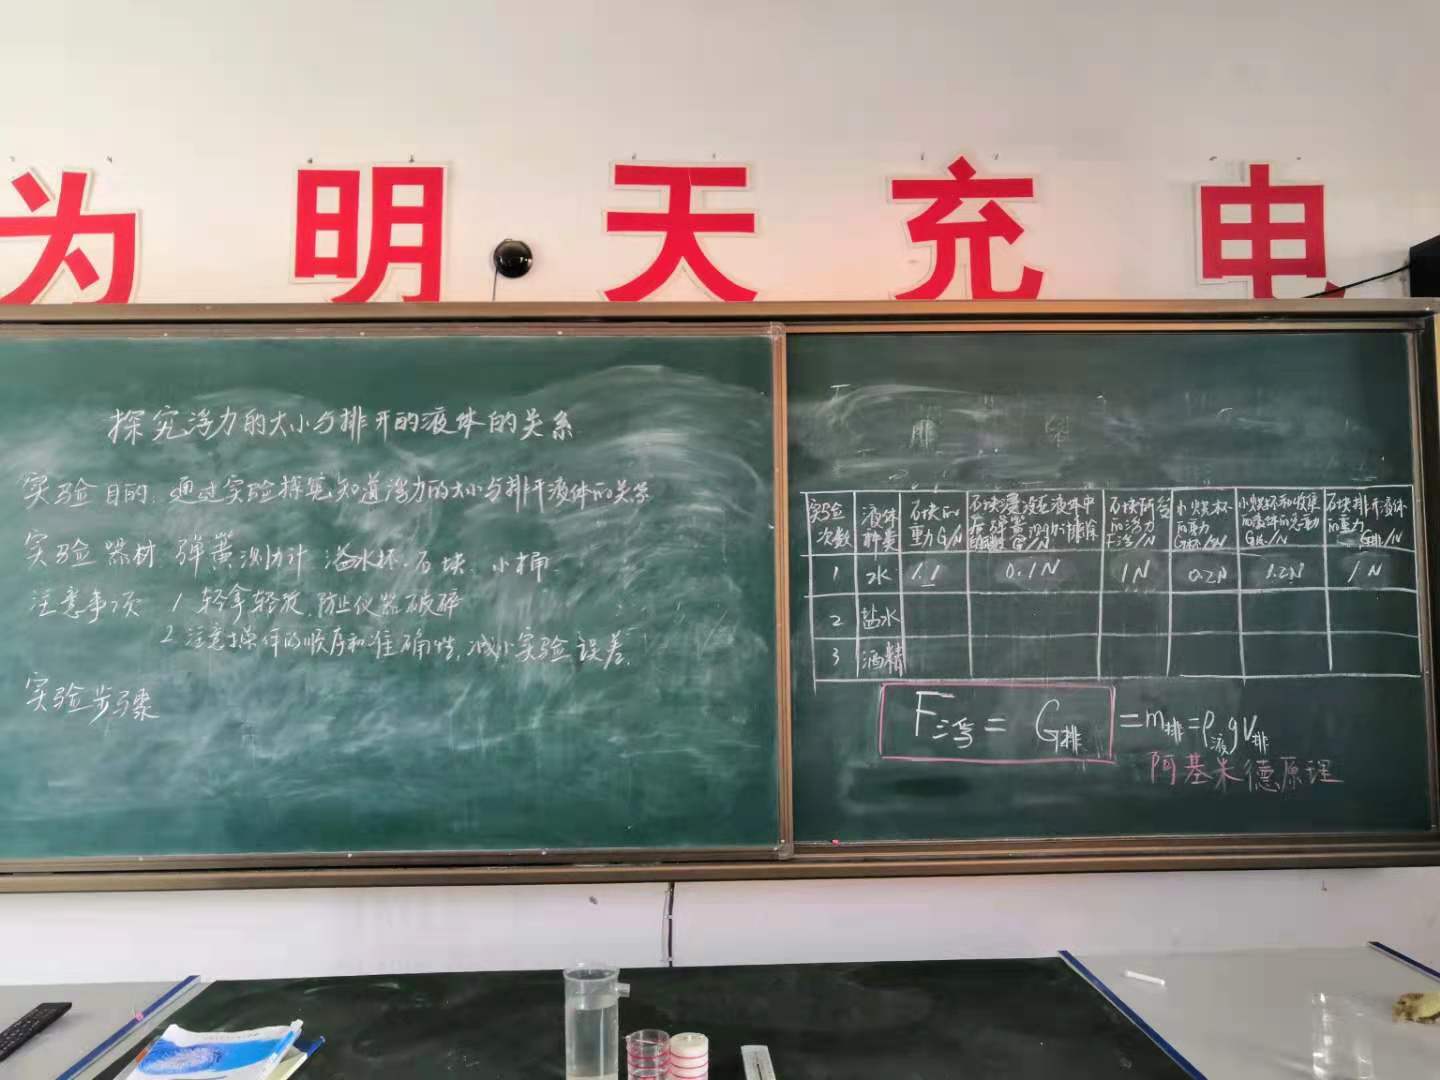 为明天充电
探究浮力的大小与排开的液体的关系
实验目的：通过实验探究知道浮力的大小与排开液体的关系
实验器材 弹簧测力计 溢水杯、石块、小桶
注意事项 1. 轻拿轻放，防止仪器破碎
2. 注意操作的顺序和准确性，减小实验误差。
实验步骤
实验次数 液体种类 石块的重力G/N 石块浸没在液体中 石块所受的浮力F浮/N 小烧杯的重力G杯/N 小烧杯和收集的液体的总重力 石块排开液体的重力G排/N
1 水 1.1 0.1N 1N 0.2N 1.2N 1N
2 盐水
3 酒精
F浮 = G排 = m排 = ρ液gV排
阿基米德原理